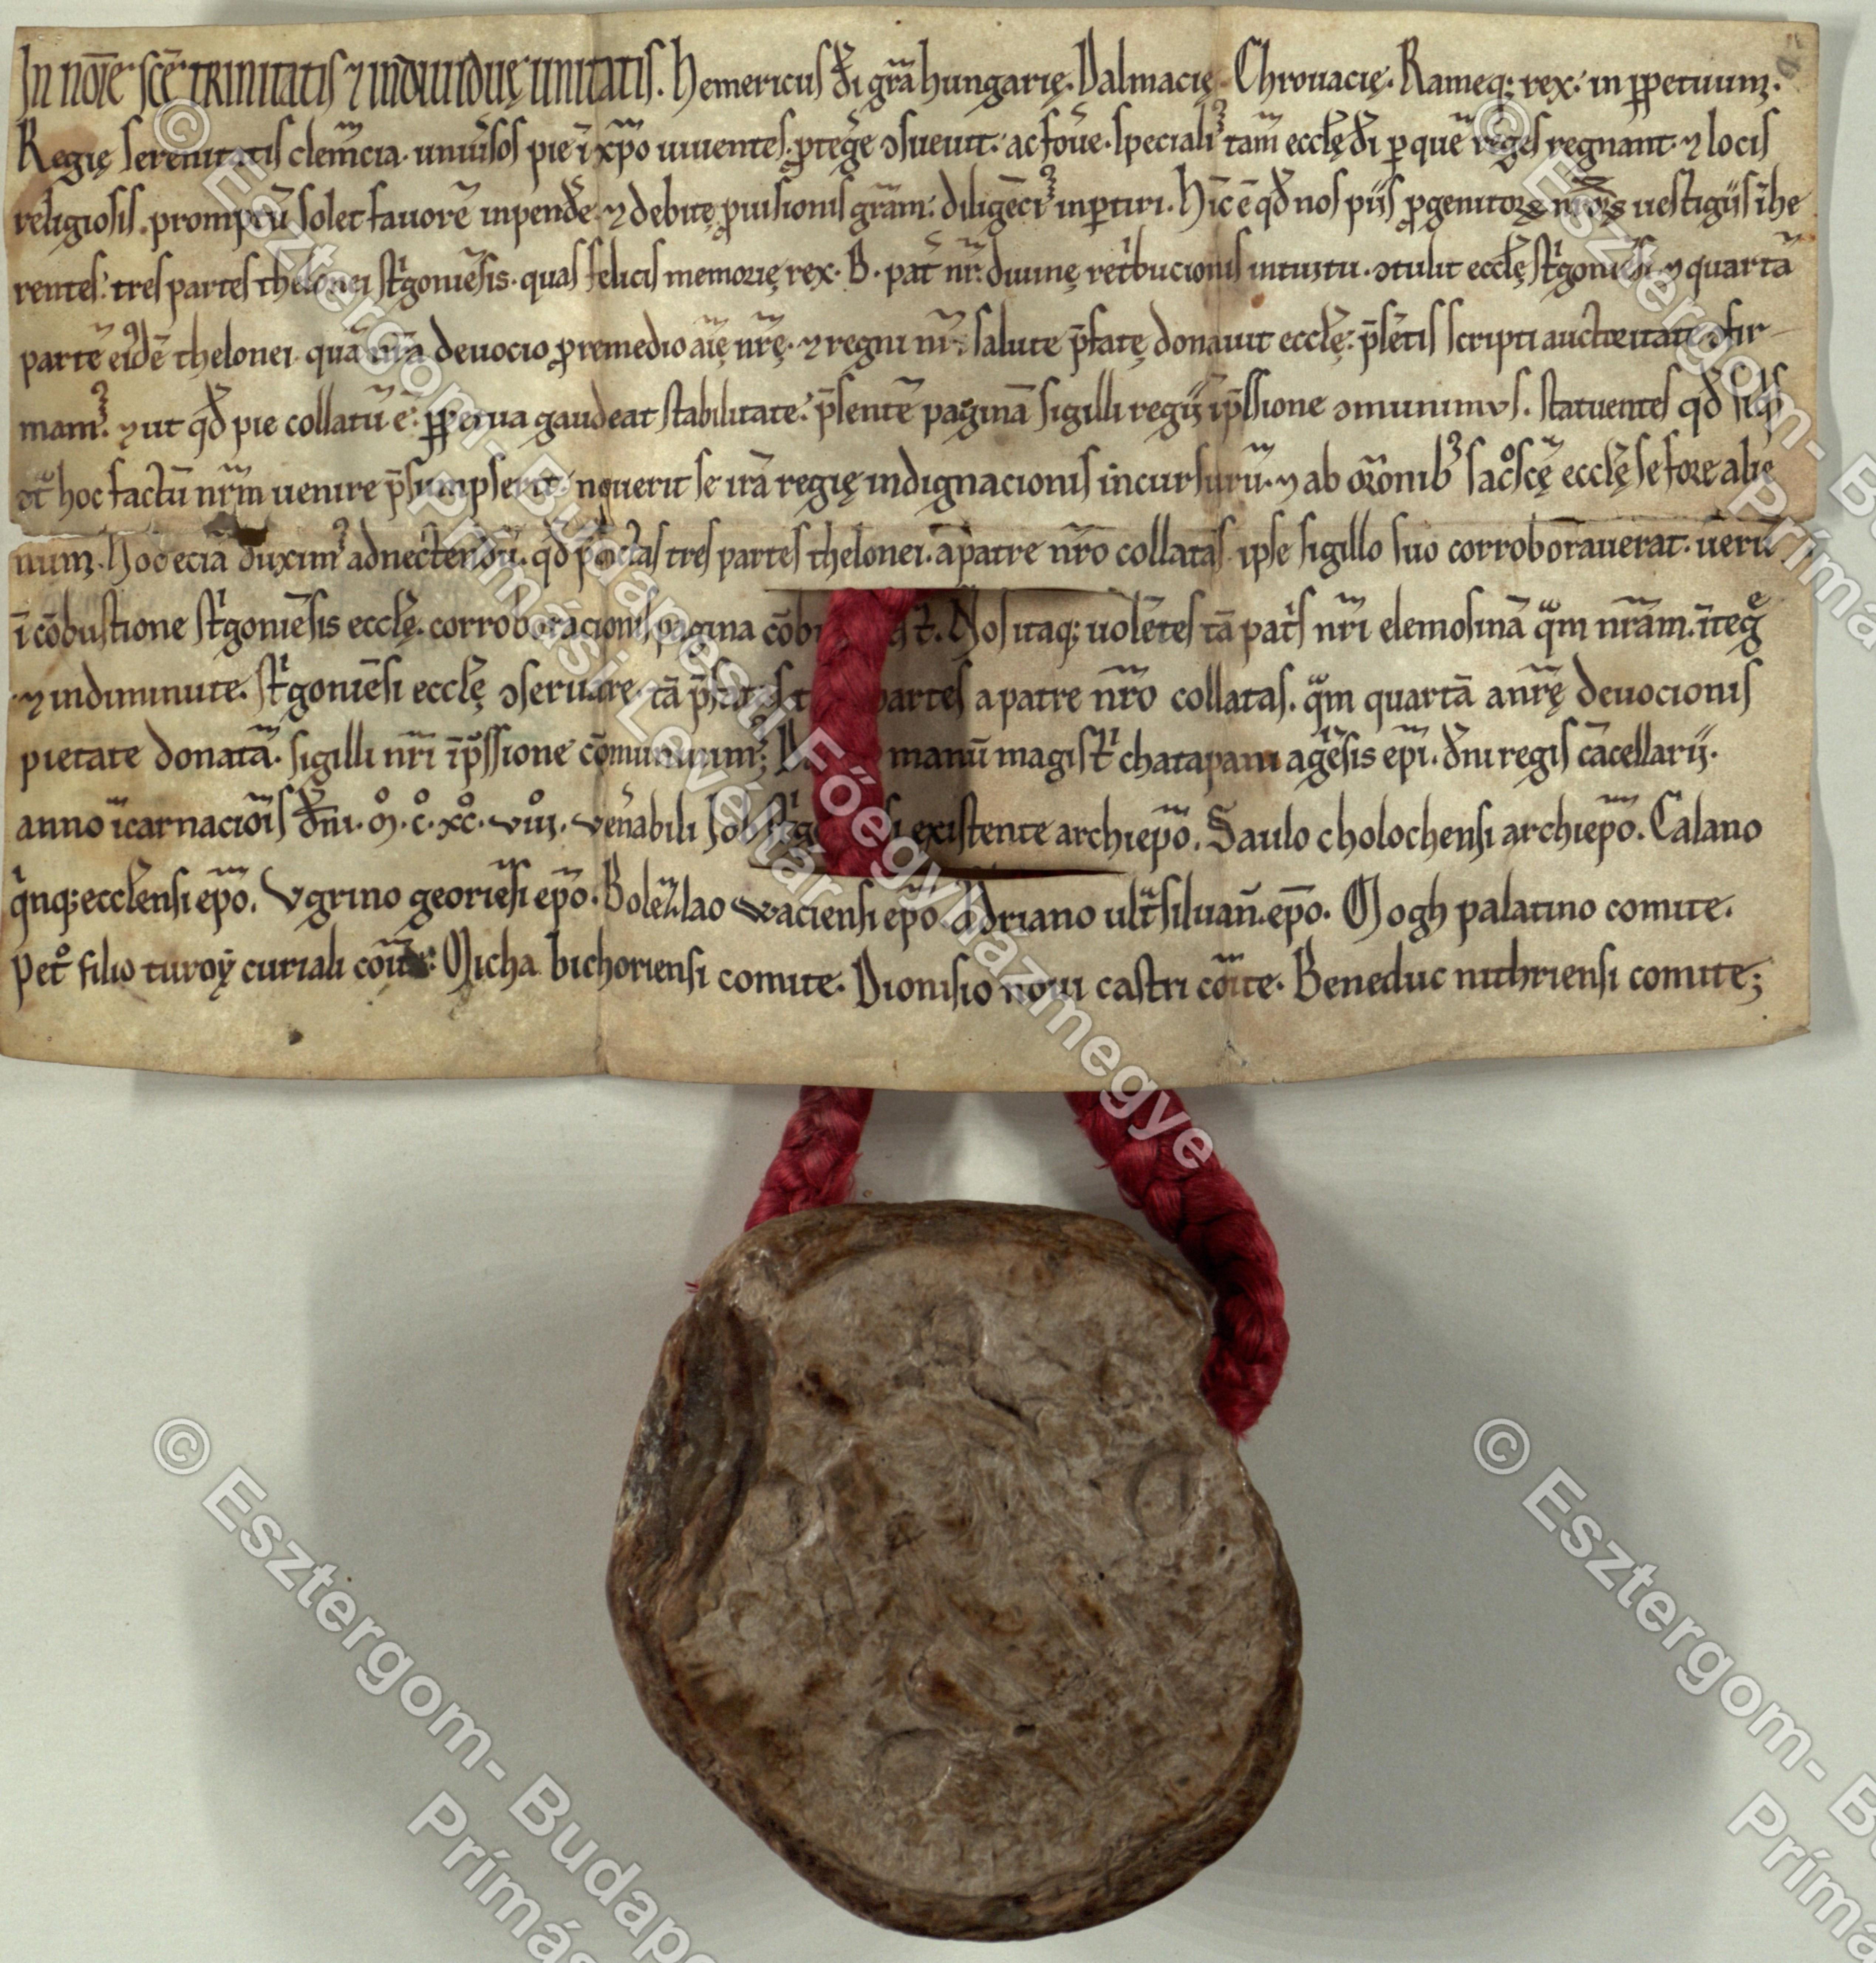 In nōīe scē trinitatis ⁊ indiuiduę unitatis. Hemericus d̄i gr̄a hungarię. Dalmacię. Chrouacię. Rameq; rex. in ꝑpetuum.
Regię serenitatis clem̄cia. uniũsos pie ī xp̄o uiuentes. ꝓteg̃e ↄsueuit. ac fou̅e. speciali᷒ tam̄ eccłę d̄i ꝑ quē reges regnant. ⁊ locis
religiosis. promptū solet fauorē inpend̃e. ⁊ debitę ꝓuisionis gr̄am. diligēci᷒ inꝑtiri. Hīc ē qđ nos piis ꝓgenitoꝝ nr̄oꝝ uestigiis īhe
rentes. tres partes thelonei st̓goniēsis. quas felicis memorię rex. B. pat̃ nr̄. diuinę ret̓bucionis intuitu. ↄtulit eccłę st̓goniēsi. ⁊ quartā
partē ei᷒dē thelonei. quā nr̄a deuocio ꝓ remedio aīę nr̄ę. ⁊ regni nr̄i salute p̄fatę donauit eccłę. p̄sētis scripti auctoritate ↄfir-
mam᷒. ⁊ ut qđ pie collatū ē. ꝑpetua gaudeat stabilitate. p̄sentē paginā sigilli regij īp̄ssione ↄmunimus. Statuentes qđ siq̓s
ↄt̃ hoc factū nr̄m uenire p̄sumpserit. nouerit se irā regię indignacionis incursurū. ⁊ ab or̄onib᷒ sac̊scę̄ eccłę se fore alie
num. Hoc eciā duxim᷒ adnectendū. qđ p̄dc̄as tres partes thelonei. a patre nr̄o collatas. ipse sigillo suo corroborauerat. uerū
ī cōbustione st̓goniēsis eccłę. corroboracionis pagina cōb t̄. Nos itaq; uolētes tā pat̓s nr̄i elemosinā qᵃm nr̄am. īteg̃
⁊ indiminute. st̓goniēsi eccłę ↄseruare. tā p̄fatas t partes a patre nr̄o collatas. qᵃm quartā a nr̄ę deuocionis
pietate donatā. sigilli nr̄i īp̄ssione cōmunium᷒; Da manū magist̓ chatapani agēsis ep̄i. dn̄i regis cācellarij.
anno īcarnaciōis dn̄i. m̊. c̊. xc̊. viii̊. ven̄abili Iob st̓g si existente archiep̄o. Saulo cholochensi archiep̄o. Calano
q̓nq;eccłensi ep̄o. Vgrino georiēsi ep̄o. Bolezlao waciensi ep̄o. Adriano ult̃siluan̄. ep̄o. Mogh palatino comite.
Pet̊ filio turoẏ curiali cōite. Micha bichoriensi comite. Dionisio noui castri cōite. Beneduc nithriensi comite;
© Esztergom-Budapesti Főegyházmegye
Prímási Levéltár
© Esztergom- Bu
Príma
© Esztergom- Budape
Prímás
© Esztergom- Bu
Príma